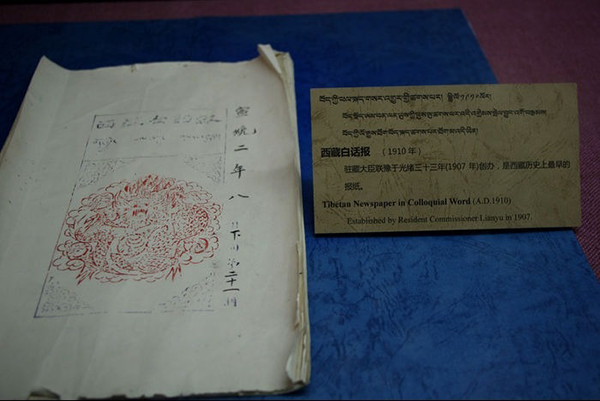 西藏白話報
宣統二年八
月下旬第二十一期
བོད་ཀྱི་ཕལ་སྐད་གསར་འགྱུར་གྱི་ཚགས་པར། སྤྱི་ལོ་༡༩༡༠ལོར།
西藏白话报 （1910 年）
驻藏大臣联豫于光绪三十三年(1907 年)创办，是西藏历史上最早的
报纸。
Tibetan Newspaper in Colloquial Word (A.D.1910)
Established by Resident Commissioner Lianyu in 1907.